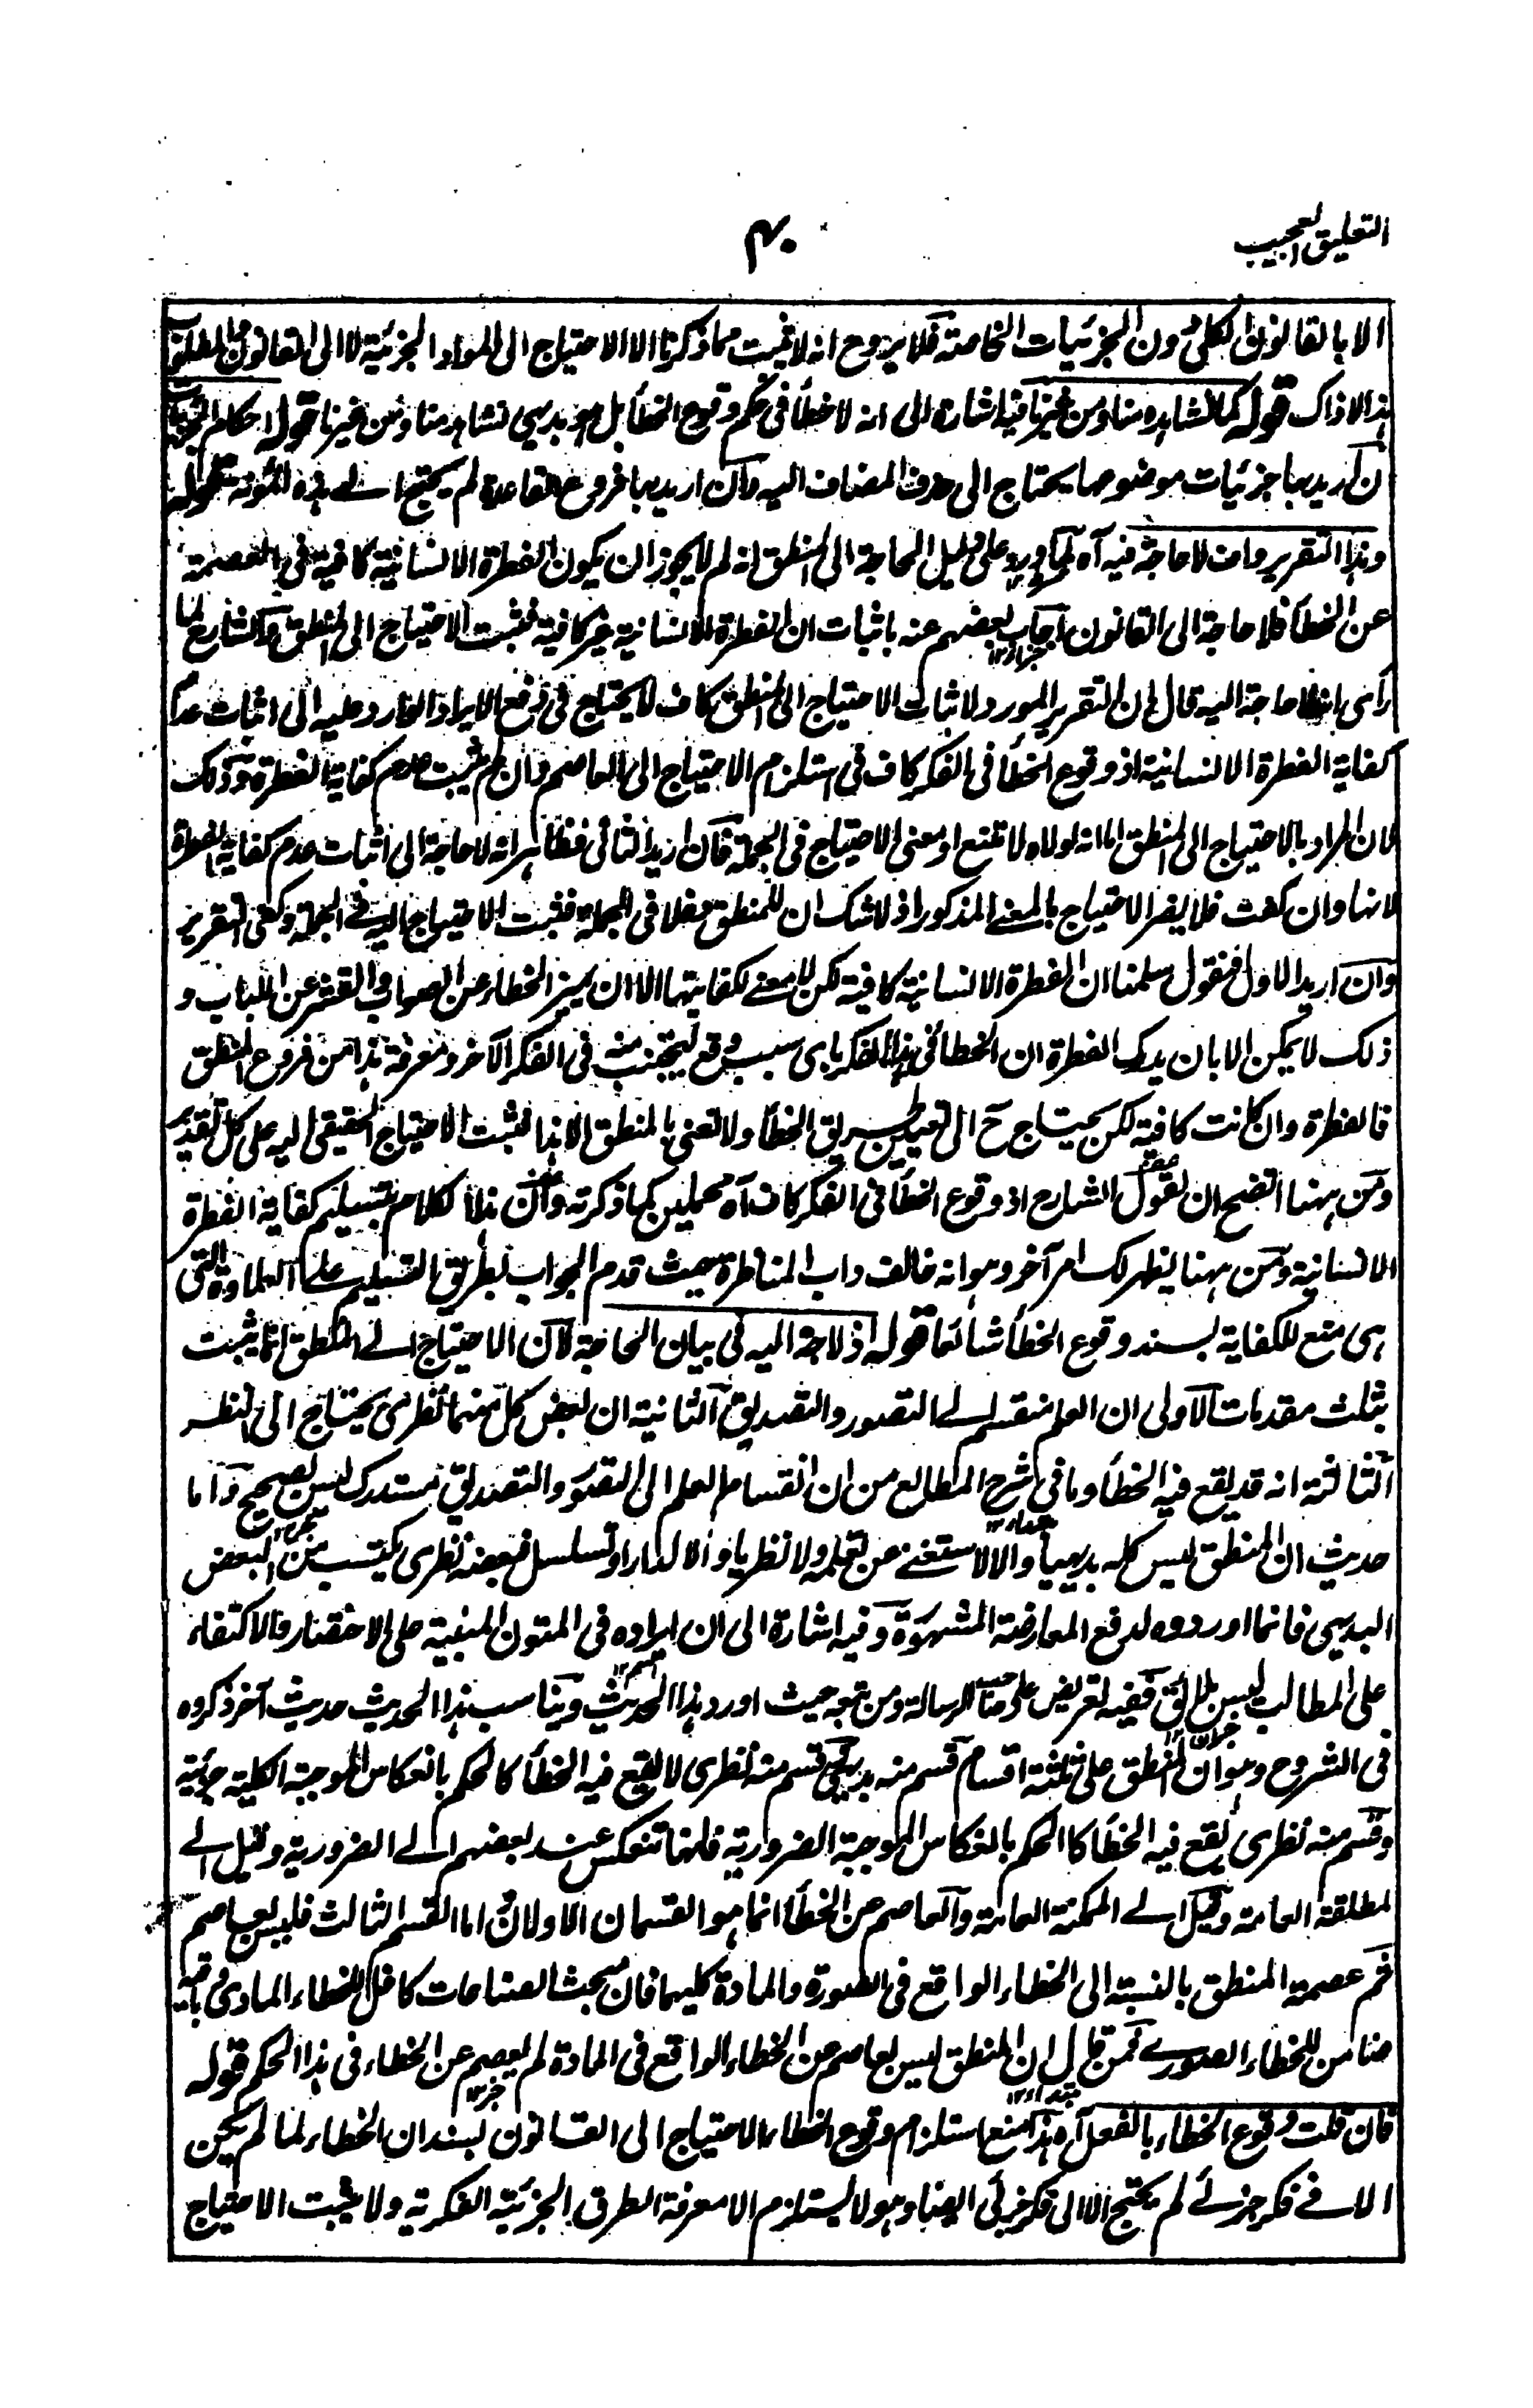 التعليق العجيب
۴۰
الا بالقانون الكلي دون الجزئيات الخاصة فلا يرد ح انه لا يثبت مما ذكرنا الا الاحتياج الى المواد الجزئية لا الى القانون والمطلوب
هذا لا ذاك قوله كما نشاهده منا ومن غيرنا فيه اشارة الى انه لا خطأ في حكم وقوع الخطأ بل هو بديهي نشاهد منا ومن غيرنا قوله احكام الجزئيات
ان اريد بها جزئيات موضوعها يحتاج الى حذف المضاف اليه وان اريد بها فروع القاعدة لم يحتج الى هذه المؤنة قوله
وهذا التقرير واف لا حاجة فيه آه لما ورد على دليل الحاجة الى المنطق انه لم لا يجوز ان يكون الفطرة الانسانية كافية في العصمة
عن الخطأ فلا حاجة الى القانون اجاب بعضهم عنه باثبات ان الفطرة الانسانية غير كافية فثبت الاحتياج الى المنطق والشارح لما
رأى انه لا حاجة اليه قال ان التقرير المورد لاثبات الاحتياج الى المنطق كاف لا يحتاج في دفع الايراد الوارد عليه الى اثبات عدم
كفاية الفطرة الانسانية اذ وقوع الخطأ في الفكر كاف في استلزام الاحتياج الى العاصم وان لم يثبت عدم كفاية الفطرة وذلك
لان المراد بالاحتياج الى المنطق اما انه لولاه لامتنع او معنى الاحتياج في الجملة فان اريد الثاني فظاهر انه لا حاجة الى اثبات عدم كفاية الفطرة
لانها وان كفت فلا يضر الاحتياج بالمعنى المذكور اذ لا شك ان للمنطق دخلا في الجملة فثبت الاحتياج اليه في الجملة وكفى التقرير
وان اريد الاول فنقول سلمنا ان الفطرة الانسانية كافية لكن لا معنى لكفايتها الا ان يميز الخطاء عن الصواب والقشر عن اللباب و
ذلك لا يمكن الا بان يدرك الفطرة ان الخطأ في هذا الفكر باى سبب وقع ليجتنب منه في الفكر الآخر ومعرفة هذا من فروع المنطق
فالفطرة وان كانت كافية لكن يحتاج ح الى تعيين طريق الخطأ ولا نعني بالمنطق الا هذا فثبت الاحتياج الحقيقي اليه على كل تقدير
ومن ههنا اتضح ان لقول الشارح اذ وقوع الخطأ في الفكر كاف آه محملين كما ذكرته وان هذا كلام بتسليم كفاية الفطرة
الانسانية ومن ههنا يظهر لك امر آخر وهو انه خالف داب المناظرة حيث قدم الجواب بطريق التسليم على العلاوة التي
هى منع للكفاية بسند وقوع الخطأ شائعا قوله اذ لا حاجة اليه في بيان الحاجة لان الاحتياج الى المنطق انما يثبت
بثلث مقدمات الاولى ان العلم منقسم الى التصور والتصديق الثانية ان بعض كل منهما نظرى يحتاج الى النظر
الثالثة انه قد يقع فيه الخطأ وما في شرح المطالع من ان انقسام العلم الى التصور والتصديق مستدرك ليس بصحيح واما
حديث ان المنطق ليس كله بديهيا والا لاستغنى عن تعلمه ولا نظريا والا لدار او تسلسل فبعضه نظرى يكتسب من البعض
البديهي فانما اوردوه لدفع المعارضة المشهورة وفيه اشارة الى ان ايراده في المتون المبنية على الاختصار والاكتفاء
على المطالب ليس بلائق ففيه تعريض على صاحب الرسالة ومن تبعه حيث اورد هذا الحديث ويناسب هذا الحديث حديث آخر ذكروه
في الشروح وهو ان المنطق على ثلثة اقسام قسم منه بديهي وقسم منه نظرى لا يقع فيه الخطأ كالحكم بانعكاس الموجبة الكلية جزئية
وقسم منه نظرى يقع فيه الخطأ كالحكم بانعكاس الموجبة الضرورية فانها تنعكس عند بعضهم الى الضرورية وقيل الى
المطلقة العامة وقيل الى الممكنة العامة والعاصم عن الخطأ انما هو القسمان الاولان واما القسم الثالث فليس بعاصم
ثم عصمة المنطق بالنسبة الى الخطاء الواقع في الصورة والمادة كليهما فان مبحث الصناعات كافل للخطاء المادى وباقيه
ضامن للخطاء الصورى فمن قال ان المنطق ليس بعاصم عن الخطاء الواقع في المادة لم يعصم عن الخطاء في هذا الحكم قوله
فان قلت وقوع الخطاء بالفعل آه هذا منع استلزام وقوع الخطاء الاحتياج الى القانون بسند ان الخطاء لما لم يكن
الا في فكر جزئي لم يحتج الا الى فكر جزئي ايضا وهو لا يستلزم الا معرفة الطرق الجزئية الفكرية ولا يثبت الاحتياج